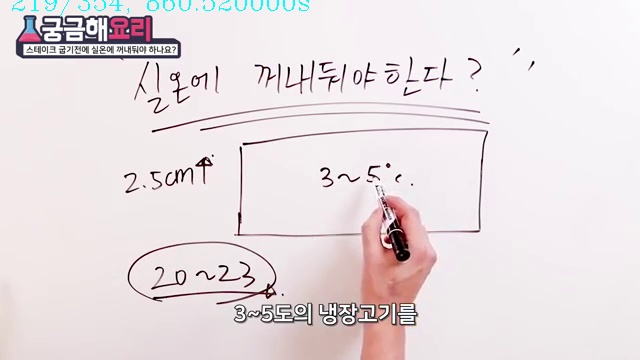 219/354, 860.520000s
궁금해요리
스테이크 굽기전에 실온에 꺼내둬야 하나요?
"실온에 꺼내둬야한다?"
2.5cm↑
3~5°c.
20~23
3~5도의 냉장고기를